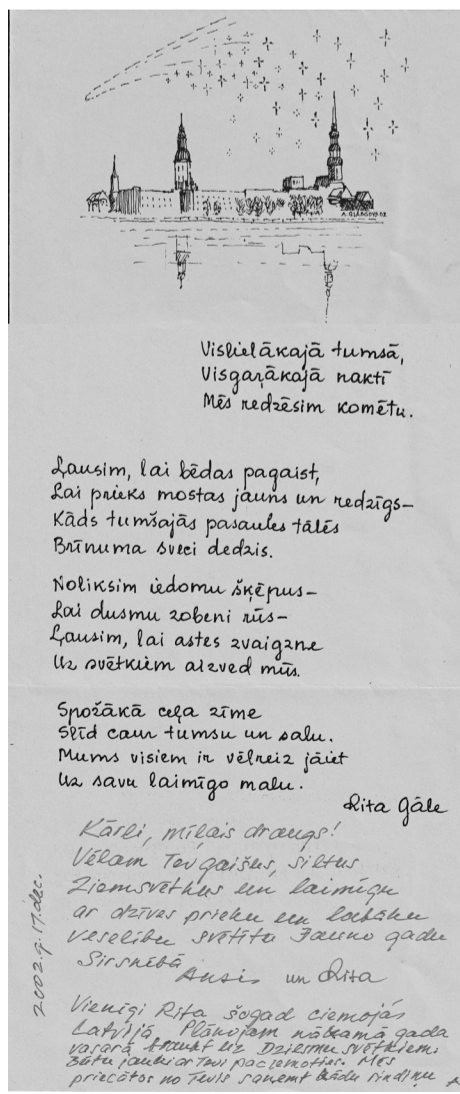 Vislielākajā tumsā,
Visgaŗākajā naktī
Mēs redzēsim komētu.
Ļausim, lai bēdas pagaist,
Lai prieks mostas jauns un redzīgs—
Kāds tumšajās pasaules tālēs
Brīnuma sveci dedzis.
Noliksim iedomu šķēpus—
Lai dusmu zobeni rūs—
Ļausim, lai astes zvaigzne
Uz svētkiem aizved mūs.
Spožākā ceļa zīme
Slīd caur tumsu un salu.
Mums visiem ir vēlreiz jāiet
Uz savu laimīgo malu.
Rita Gāle
Kārli, mīļais draugs!
Vēlam Tev gaišus, siltus
Ziemsvētkus un laimīgu
ar dzīves prieku un labāku
veselību svētītu Jauno gadu
Sirsnībā
Ansis un Rita
2002.g. 17.dec.
Vienīgi Rita šogad ciemojās
Latvijā. Plānojam nākamā gada
vasarā braukt uz Dziesmu svētkiem.
Būtu jauki ar Tevi paciemoties. Mēs
priecātos no Tevis saņemt kādu rindiņu